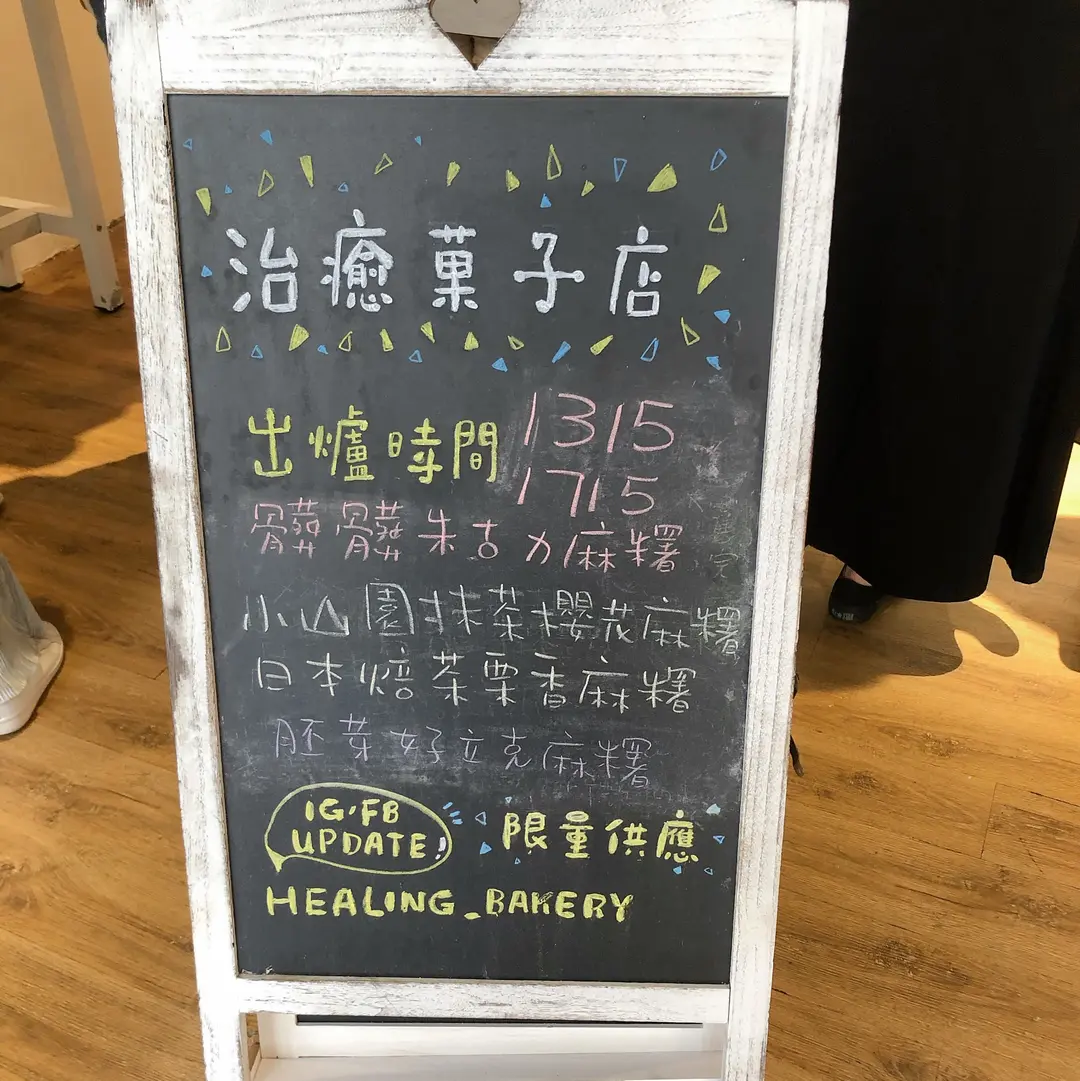 治癒菓子店
出爐時間 1315
1715
髒髒朱古力麻糬
小山園抹茶櫻花麻糬
日本焙茶栗香麻糬
胚芽好立克麻糬
IG,FB
UPDATE!
限量供應
HEALING_BAKERY